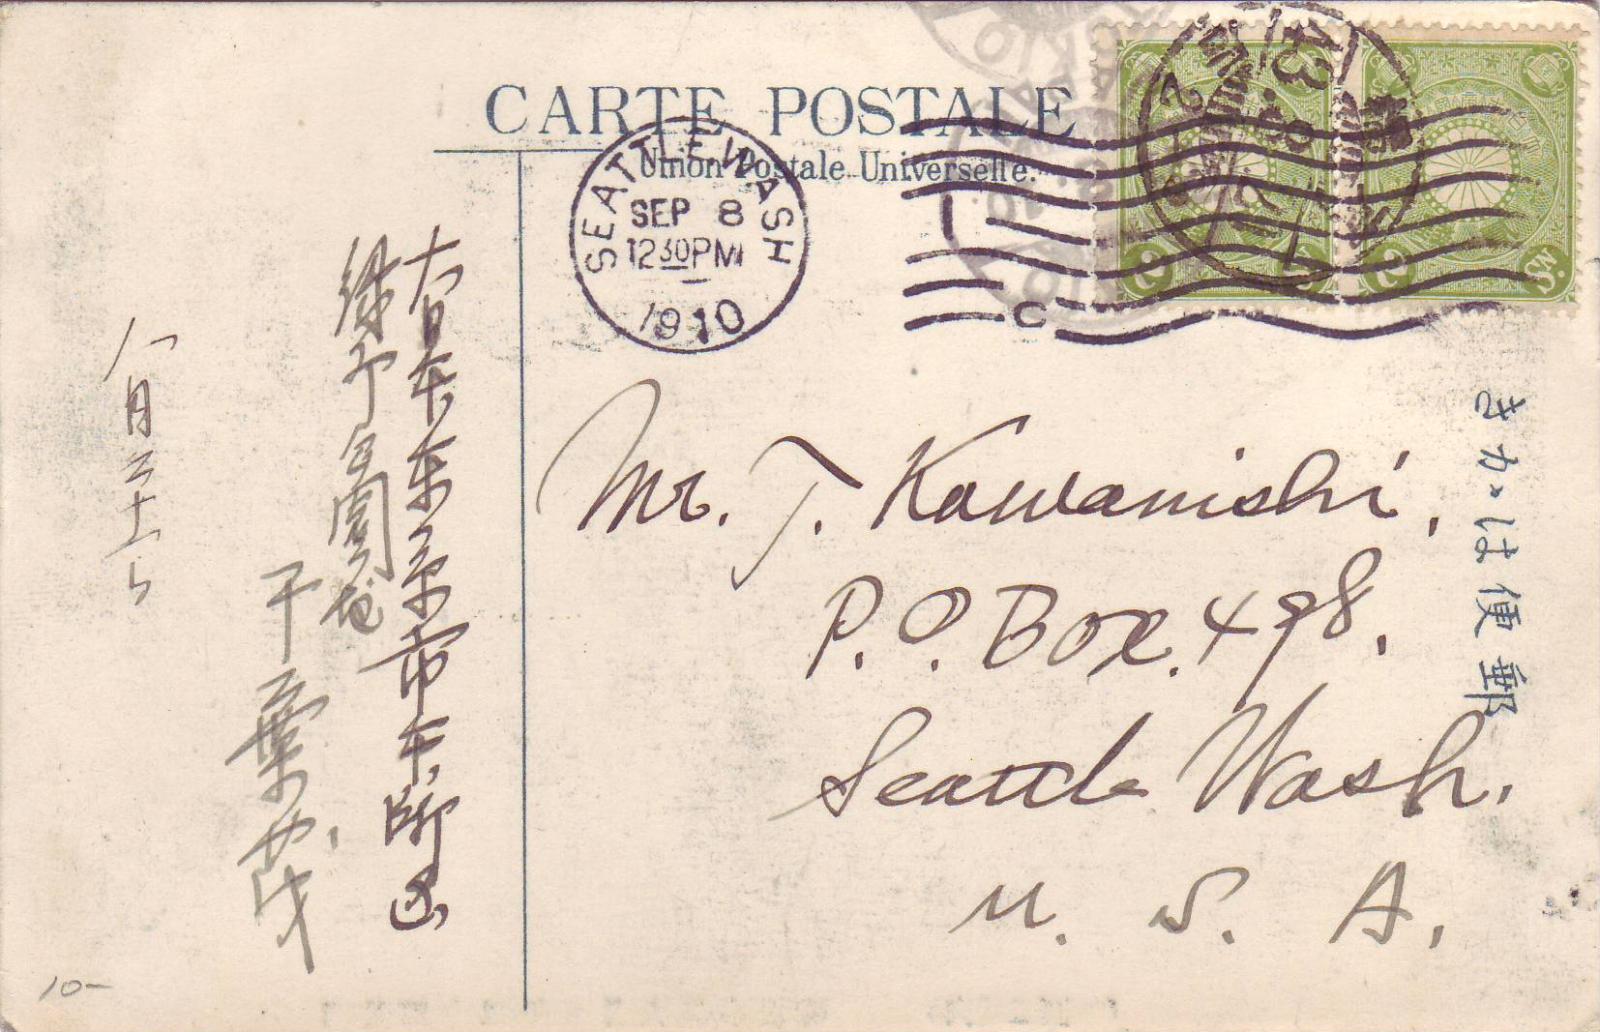 CARTE POSTALE
Union Postale Universelle.
SEATTLE. WASH
SEP 8
1230PM
1910
C
2
Sn.
2
Sn.
きかは便郵
Mr. T. Kawanishi,
P.O. Box. 498.
Seattle Wash.
U. S. A.
大日本東京市本所区
千葉
八月二十
10-